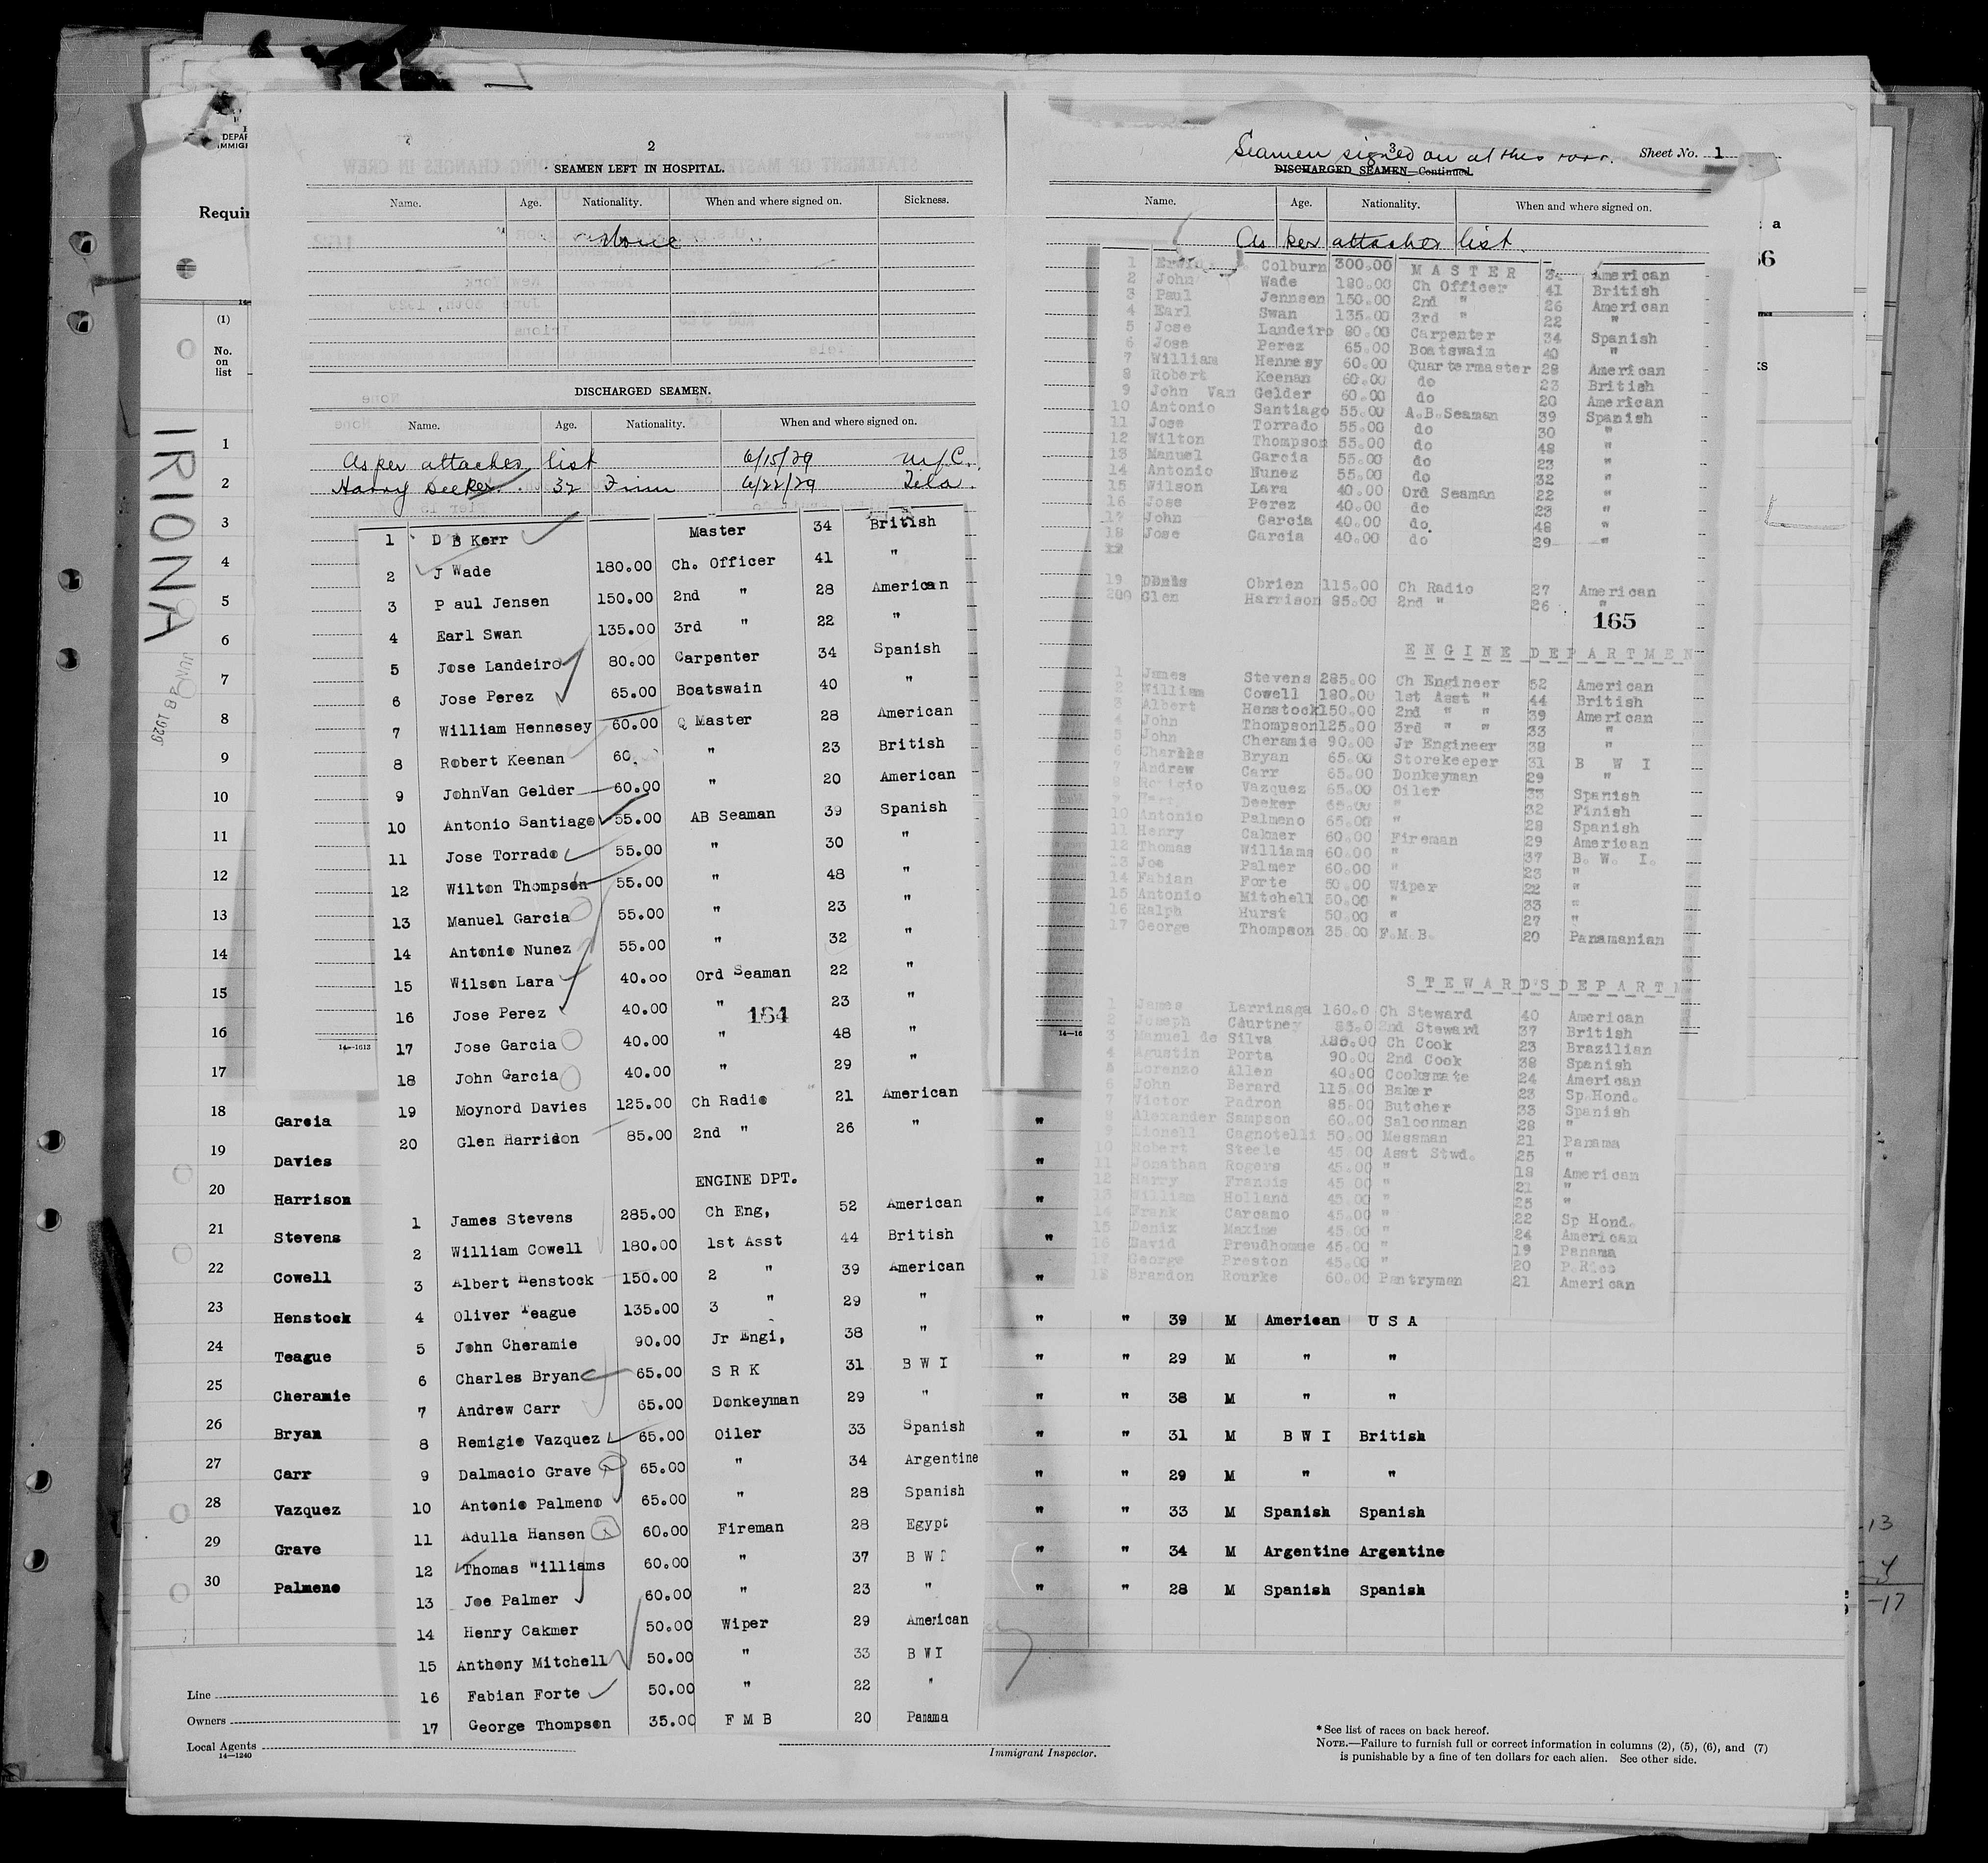 DEPAR
IMMIGR
Requir
(1)
No.
on
list
IRIONA
JUN 28 1929
1
2
3
4
5
6
7
8
9
10
11
12
13
14
15
16
17
18 Garcia
19 Davies
20 Harrison
21 Stevens
22 Cowell
23 Henstock
24 Teague
25 Cheramie
26 Bryan
27 Carr
28 Vazquez
29 Grave
30 Palmeno
Line
Owners
Local Agents
14—1240
2
SEAMEN LEFT IN HOSPITAL.
Name. Age. Nationality. When and where signed on. Sickness.
None
DISCHARGED SEAMEN.
Name. Age. Nationality. When and where signed on.
As per attached list 6/15/29 N.Y.C.
Harry Decker 32 Finn 6/22/29 Tela.
1 D B Kerr Master 34 British
2 J Wade 180.00 Ch. Officer 41 "
3 Paul Jensen 150.00 2nd " 28 American
4 Earl Swan 135.00 3rd " 22 "
5 Jose Landeiro 80.00 Carpenter 34 Spanish
6 Jose Perez 65.00 Boatswain 40 "
7 William Hennesey 60.00 Q Master 28 American
8 Robert Keenan 60. " 23 British
9 JohnVan Gelder 60.00 " 20 American
10 Antonio Santiago 55.00 AB Seaman 39 Spanish
11 Jose Torrado 55.00 " 30 "
12 Wilton Thompson 55.00 " 48 "
13 Manuel Garcia 55.00 " 23 "
14 Antonio Nunez 55.00 " 32 "
15 Wilson Lara 40.00 Ord Seaman 22 "
16 Jose Perez 40.00 " 23 "
164
17 Jose Garcia 40.00 " 48 "
18 John Garcia 40.00 " 29 "
19 Moynord Davies 125.00 Ch Radio 21 American
20 Glen Harrison 85.00 2nd " 26 "
ENGINE DPT.
1 James Stevens 285.00 Ch Eng, 52 American
2 William Cowell 180.00 1st Asst 44 British
3 Albert Henstock 150.00 2 " 39 American
4 Oliver Teague 135.00 3 " 29 "
5 John Cheramie 90.00 Jr Engi, 38 "
6 Charles Bryan 65.00 S R K 31 B W I
7 Andrew Carr 65.00 Donkeyman 29 "
8 Remigio Vazquez 65.00 Oiler 33 Spanish
9 Dalmacio Grave 65.00 " 34 Argentine
10 Antonio Palmeno 65.00 " 28 Spanish
11 Adulla Hansen 60.00 Fireman 28 Egypt
12 Thomas Williams 60.00 " 37 B W I
13 Joe Palmer 60.00 " 23 "
14 Henry Cakmer 50.00 Wiper 29 American
15 Anthony Mitchell 50.00 " 33 B W I
16 Fabian Forte 50.00 " 22 "
17 George Thompson 35.00 F M B 20 Panama
14—1613
3
Seamen signed on at this
Sheet No. 1
DISCHARGED SEAMEN—Continued.
Name. Age. Nationality. When and where signed on.
As per attached list.
1 Erwin Colburn 300.00 MASTER 34 American
2 John Wade 180.00 Ch Officer 41 British
3 Paul Jennsen 150.00 2nd " 26 American
4 Earl Swan 135.00 3rd " 22 "
5 Jose Landeiro 80.00 Carpenter 34 Spanish
6 Jose Perez 65.00 Boatswain 40 "
7 William Hennesy 60.00 Quartermaster 28 American
8 Robert Keenan 60.00 do 23 British
9 John Van Gelder 60.00 do 20 American
10 Antonio Santiago 55.00 A.B.Seaman 39 Spanish
11 Jose Torrado 55.00 do 30 "
12 Wilton Thompson 55.00 do 48 "
13 Manuel Garcia 55.00 do 23 "
14 Antonio Nunez 55.00 do 32 "
15 Wilson Lara 40.00 Ord Seaman 22 "
16 Jose Perez 40.00 do 23 "
17 John Garcia 40.00 do. 48 "
18 Jose Garcia 40.00 do 29 "
19 Obrien 115.00 Ch Radio 27 American
Glen Harrison 85.00 2nd " 26 "
165
ENGINE DEPARTMEN
1 James Stevens 285.00 Ch Engineer 52 American
2 William Cowell 180.00 1st Asst " 44 British
3 Albert Henstock 150.00 2nd " " 39 American
4 John Thompson 125.00 3rd " " 33 "
5 John Cheramie 90.00 Jr Engineer 38 "
6 Charles Bryan 65.00 Storekeeper 31 B W I
7 Andrew Carr 65.00 Donkeyman 29 "
8 Vazquez 65.00 Oiler 33 Spanish
9 Decker 65.00 " 32 Finish
10 Antonio Palmeno 65.00 " 28 Spanish
11 Henry Cakmer 60.00 Fireman 29 American
12 Thomas Williams 60.00 " 37 B. W. I.
13 Joe Palmer 60.00 " 23 "
14 Fabian Forte 50.00 Wiper 22 "
15 Antonio Mitchell 50.00 " 33 "
16 Ralph Hurst 50.00 " 27 "
17 George Thompson 35.00 F.M.B. 20 Panamanian
STEWARD'S DEPART
1 James Larrinaga 160.0 Ch Steward 40 American
2 Joseph Courtney 2nd Steward 37 British
3 Manuel de Silva Ch Cook 23 Brazilian
4 Agustin Porta 90.00 2nd Cook 38 Spanish
5 Lorenzo Allen 40.00 Cooksmate 24 American
6 John Berard 115.00 Baker 23 Sp Hond.
7 Victor Padron 85.00 Butcher 33 Spanish
8 Alexander Sampson 60.00 Saloonman 28 "
9 Lionell Cagnotelli 50.00 Messman 21 Panama
10 Robert Steele 45.00 Asst Stwd. 25 "
11 Jonathan Rogers 45.00 " 18 American
12 Harry Francis 45.00 " 21 "
13 William Holland 45.00 " 25 "
14 Frank Carcamo 45.00 " 22 Sp Hond.
15 Denix Maxime 45.00 " 24 American
16 David Preudhomme 45.00 " 19 Panama
17 George Preston 45.00 " 20 P.Rico
18 Brandon Rourke 60.00 Pantryman 21 American
" " 39 M American U S A
" " 29 M " "
" " 38 M " "
" " 31 M B W I British
" " 29 M " "
" " 33 M Spanish Spanish
" " 34 M Argentine Argentine
" " 28 M Spanish Spanish
Immigrant Inspector.
*See list of races on back hereof.
NOTE.—Failure to furnish full or correct information in columns (2), (5), (6), and (7)
is punishable by a fine of ten dollars for each alien. See other side.